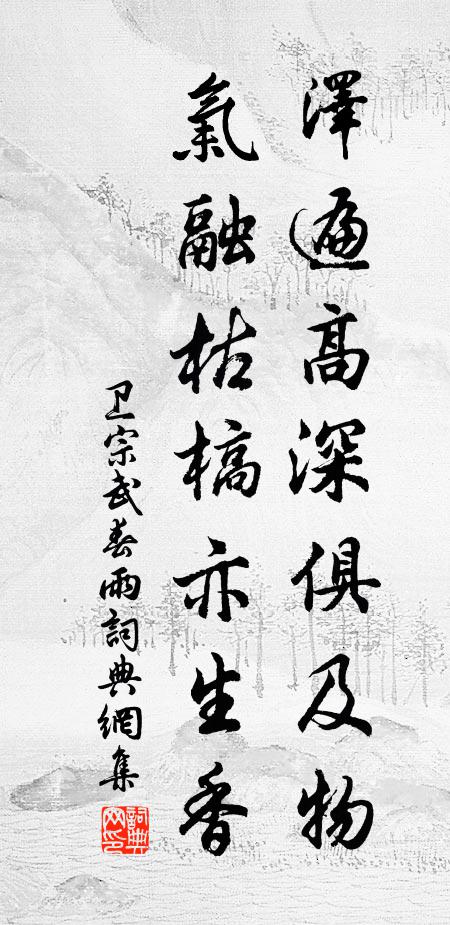 澤遍高深俱及物
氣融枯槁亦生香
卫宗武春雨詞典網集
詞典網印